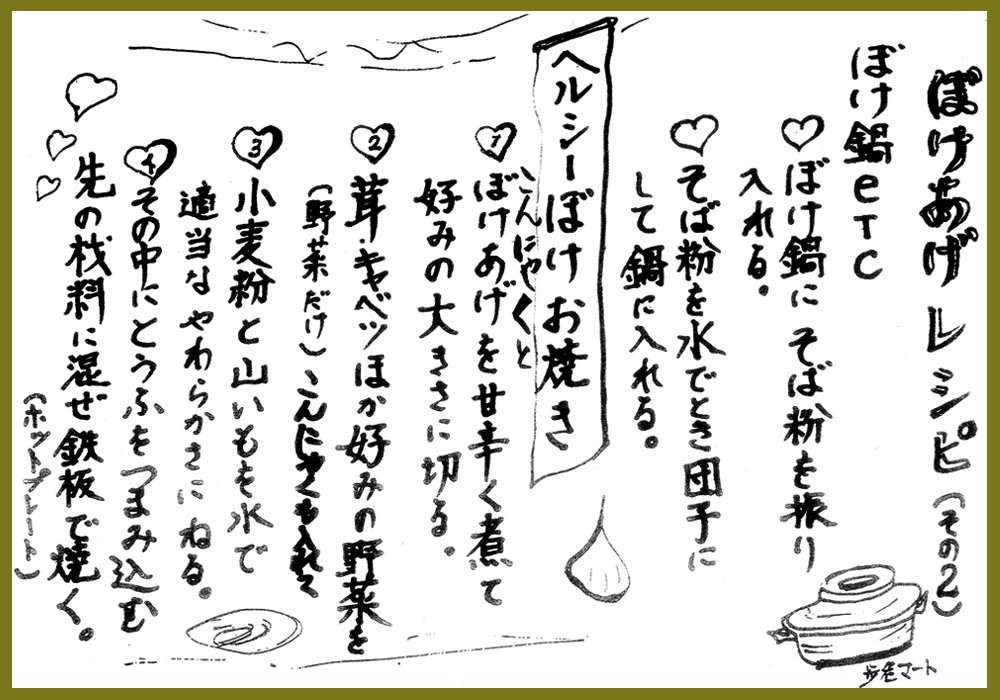 ぼけあげレシピ（その2）
ぼけ鍋etc
♡ぼけ鍋にそば粉を振り
入れる。
♡そば粉を水でとき団子に
して鍋に入れる。
ヘルシーぼけお焼き
①ぼけあげを甘辛く煮て
こんにゃくと
好みの大きさに切る。
②茸・キャベツほか好みの野菜を
（野菜だけ）こんにゃくも入れて
③小麦粉と山いもを水で
適当なやわらかさにねる。
④その中にとうふをつまみ込む
先の材料に混ぜ鉄板で焼く。
（ホットプレート）
マート